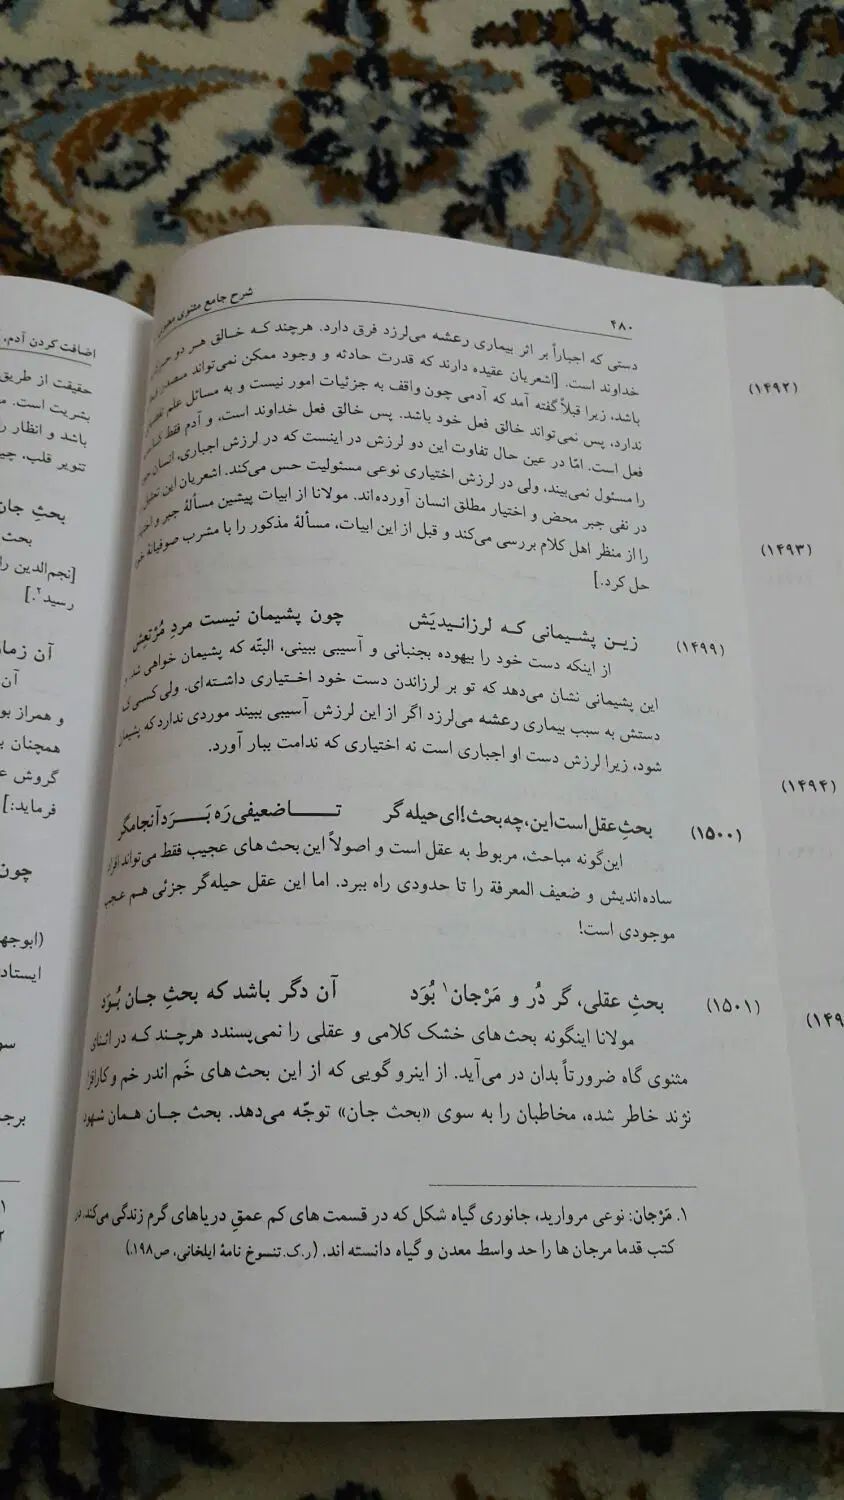 ۴۸۰
شرح جامع مثنوی
دستی که اجباراً بر اثر بیماری رعشه می‌لرزد فرق دارد. هرچند که خالق هر دو
خداوند است. [اشعریان عقیده دارند که قدرت حادثه و وجود ممکن نمی‌تواند
باشد، زیرا قبلاً گفته آمد که آدمی چون واقف به جزئیات امور نیست و به مسائل علم
ندارد، پس نمی‌تواند خالق فعل خود باشد. پس خالق فعل خداوند است، و آدم فقط
فعل است. امّا در عین حال تفاوت این دو لرزش در اینست که در لرزش اجباری، انسان
را مسئول نمی‌بیند، ولی در لرزش اختیاری نوعی مسئولیت حس می‌کند. اشعریان این
در نفی جبر محض و اختیار مطلق انسان آورده‌اند. مولانا از ابیات پیشین مسألهٔ جبر و
را از منظر اهل کلام بررسی می‌کند و قبل از این ابیات، مسألهٔ مذکور را با مشرب صوفیانهٔ
حل کرد.]
(۱۴۹۹) زیـن پشـیمانی کـه لرزانـیدیَش چون پشیمان نیست مردِ مُرْتَعِش
از اینکه دست خود را بیهوده بجنبانی و آسیبی ببینی، البتّه که پشیمان خواهی
این پشیمانی نشان می‌دهد که تو بر لرزاندن دست خود اختـیاری داشـته‌ای. ولی کسـی
دستش به سبب بیماری رعشه می‌لرزد اگر از این لرزش آسیبی ببیند موردی ندارد که پشیمان
شود، زیرا لرزش دست او اجباری است نه اختیاری که ندامت ببار آورد.
(۱۵۰۰) بحثِ عقل است این، چه بحث! ای حیله گر تـا ضعیفی رَه بَـرَد آنجا مگر
این‌گونه مباحث، مربوط به عقل است و اصولاً این بحث های عجیب فقط می‌تواند افراد
ساده‌اندیش و ضعیف المعرفة را تا حدودی راه ببرد. اما این عقل حیله‌گر جزئی هـم عـجب
موجودی است!
(۱۵۰۱) بحثِ عقلی، گر دُر و مَرْجان۱ بُوَد آن دگر باشد که بحثِ جـان بُـوَد
مولانا اینگونه بحث‌های خشک کلامی و عقلی را نمی‌پسندد هرچند کـه در اثـنای
مثنوی گاه ضرورتاً بدان در می‌آید. از اینرو گویی که از این بحث‌های خَم اندر خم و کارافزا
نژند خاطر شده، مخاطبان را به سوی «بحث جان» توجّه می‌دهد. بحث جـان هـمان شـهود
۱. مَرْجان: نوعی مروارید، جانوری گیاه شکل که در قسمت های کم عمقِ دریاهای گرم زندگی می‌کند. در
کتب قدما مرجان ها را حد واسط معدن و گیاه دانسته اند. (ر.ک. تنسوخ نامهٔ ایلخانی، ص۱۹۸.)
اضافت کردن آدم،
حقیقت از طریق
بشریت است.
باشد و انظار
تنویر قلب،
بحثِ جان
بحث
[نجم‌الدین
رسید۲.]
آن زمان
آن
و همراز
همچنان
گروش
فرماید:]
چون
ایستاد
(۱۴۹۲)
(۱۴۹۳)
(۱۴۹۴)